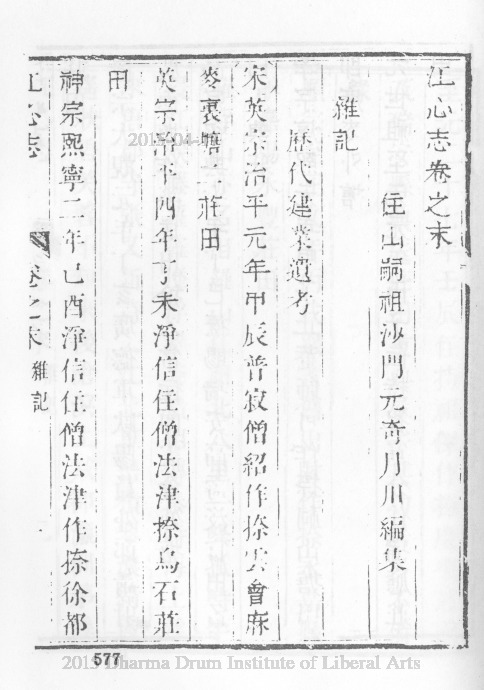 江心志卷之末
住山嗣祖沙門元奇月川編集
雜記
歷代建業遺考
宋英宗治平元年甲辰普寂僧紹作捺雲會庥
麥裏塘二莊田
英宗治平四年丁未淨信住僧法津捺烏石莊
田
神宗熙寧二年己酉淨信住僧法津作捺徐都
江心志
卷之末
雜記
577
2015 Dharma Drum Institute of Liberal Arts